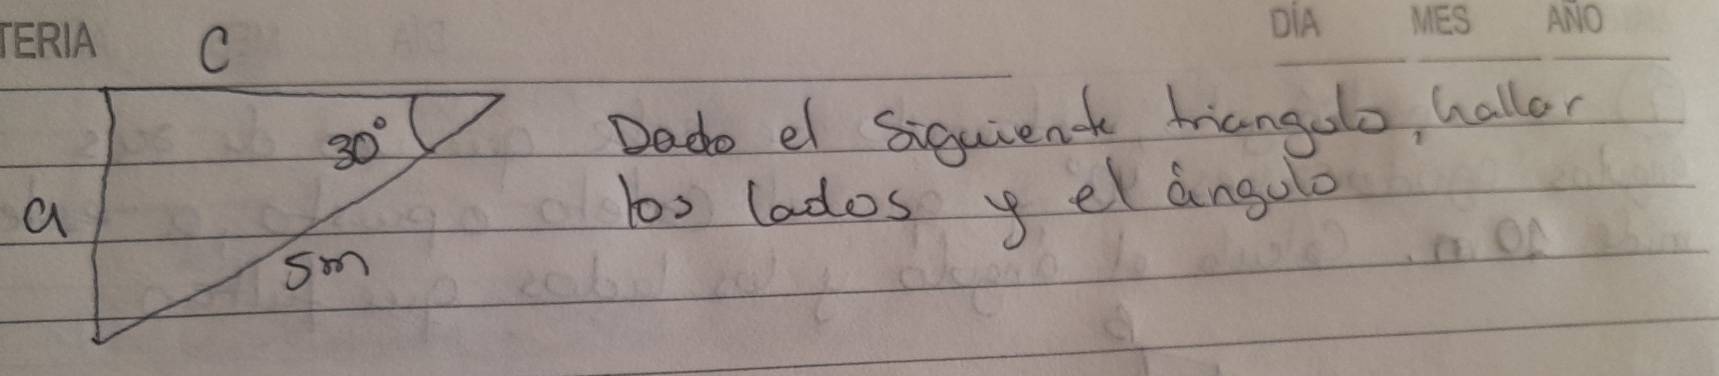 TERIA
DÍA MES AÑO
C
30°
Dado el siguiente triangulo, hallar
los lados y el ángulo
a
5m